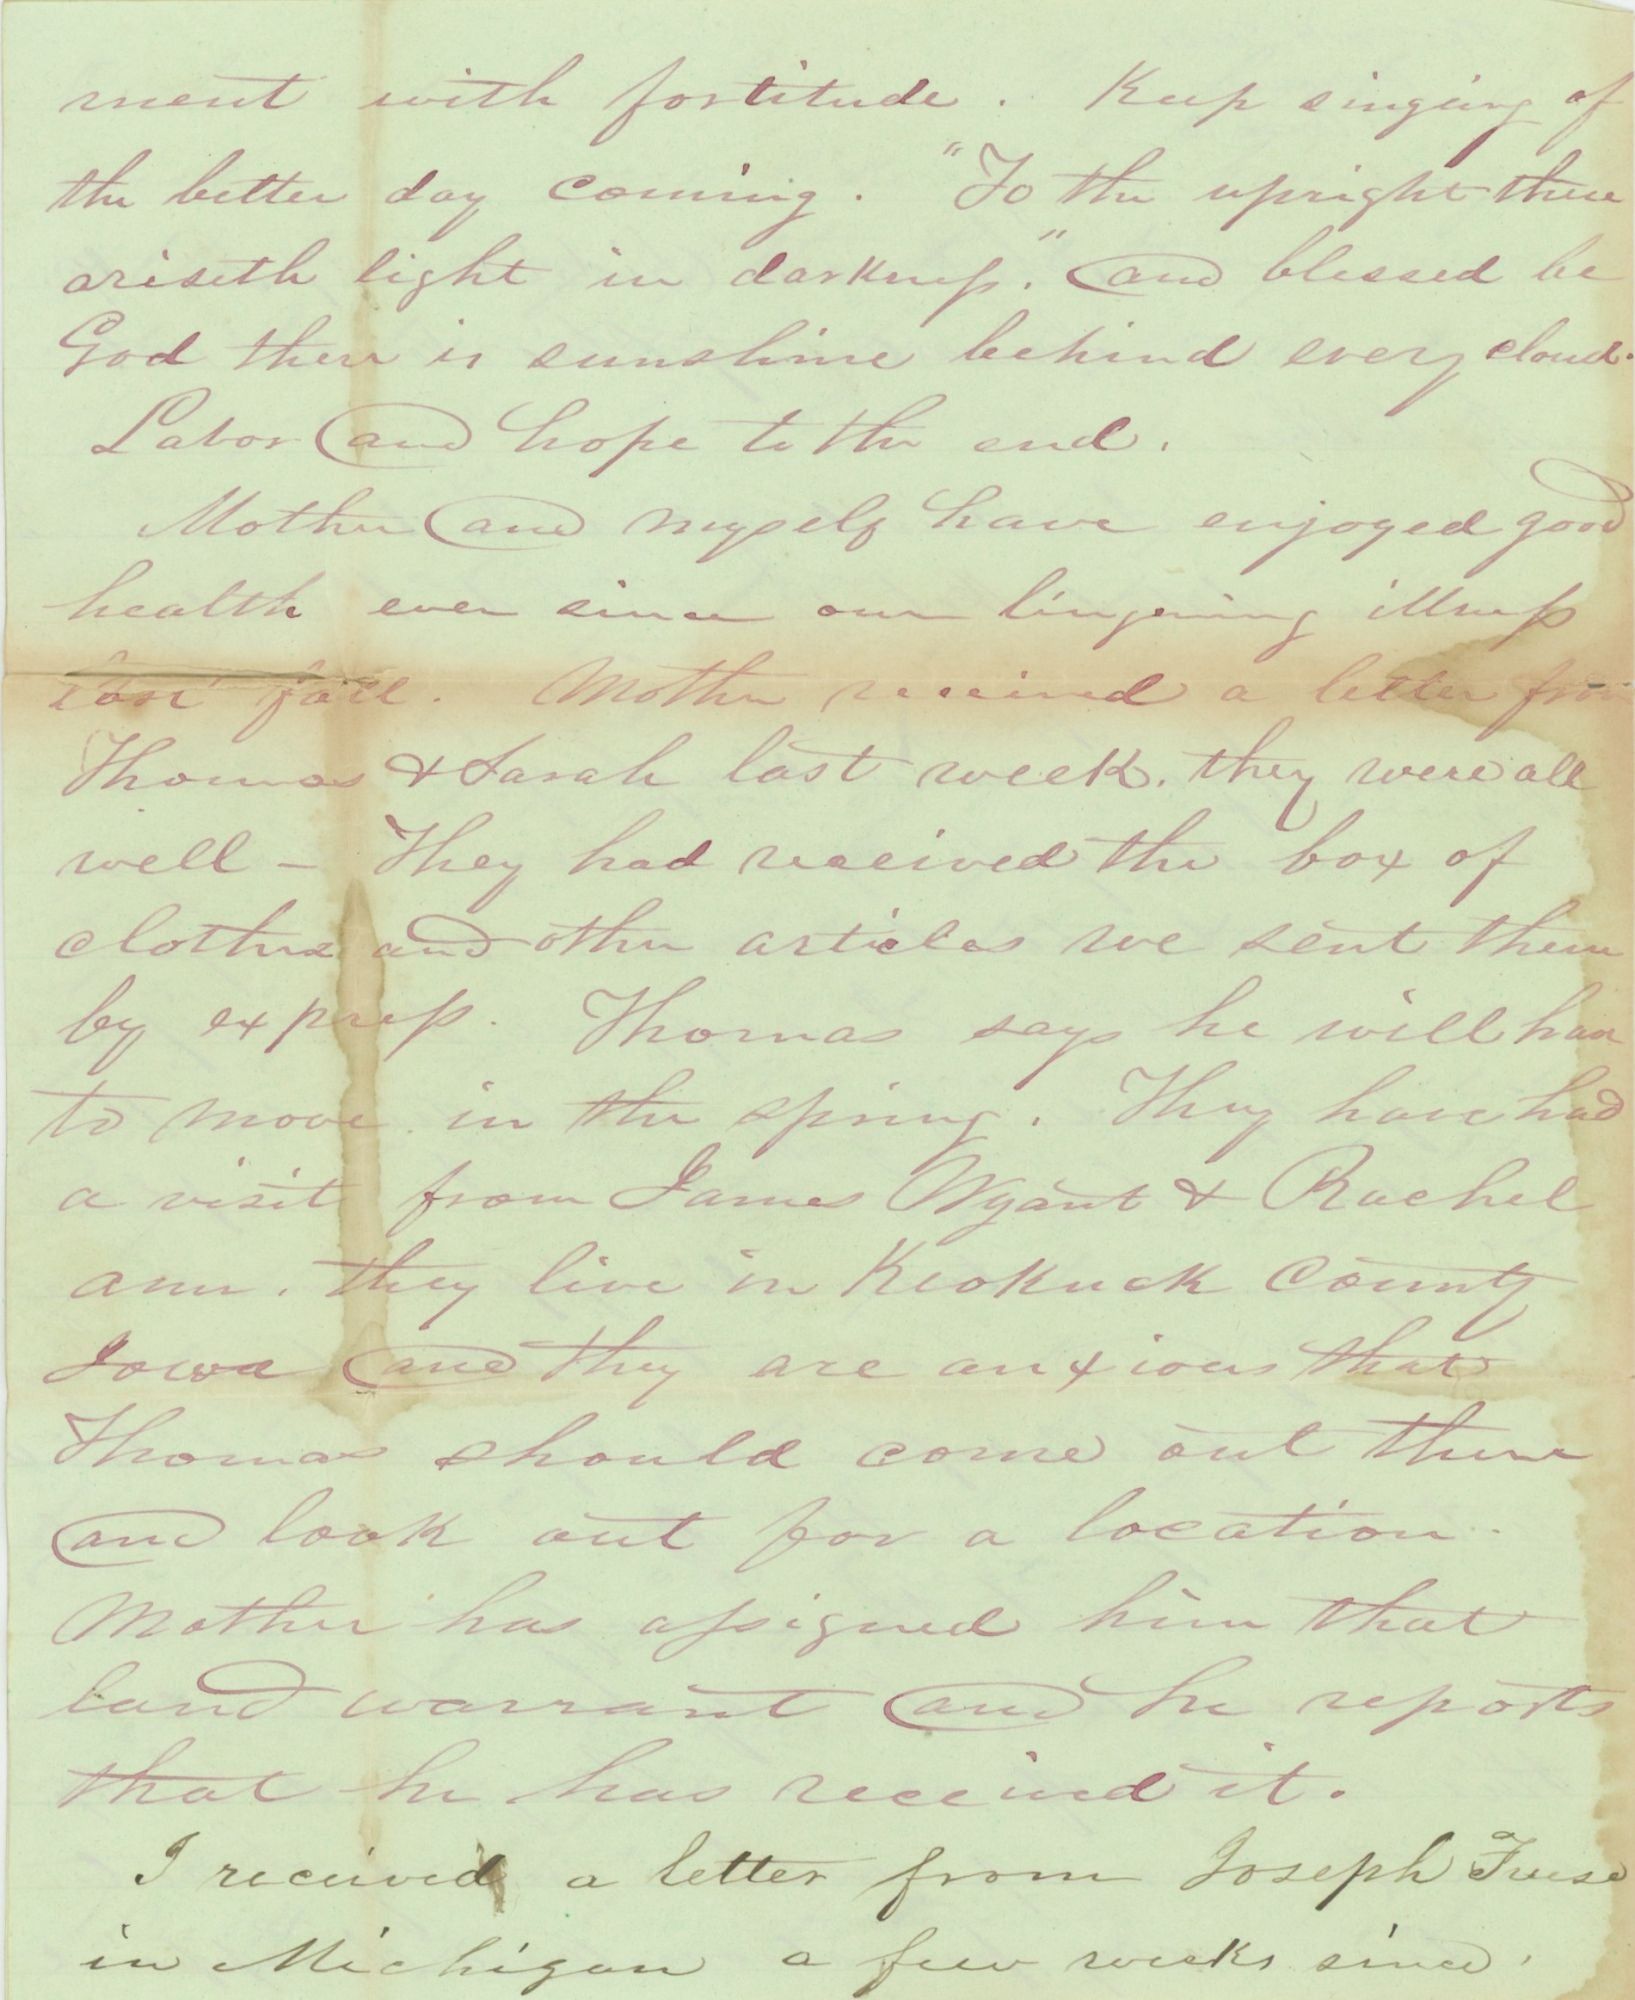 ment with fortitude. Keep singing of
the better day coming. "To the upright there
ariseth light in darkness." and blessed be
God there is sunshine behind every cloud.
Labor and hope to the end.
Mother and myself have enjoyed good
health ever since our lingering illness
last fall. Mother received a letter from
Thomas & Sarah last week. they were all
well - They had received the box of
clothes and other articles we sent them
by express. Thomas says he will have
to move in the spring. They have had
a visit from James Wyant & Rachel
ann. they live in Keokuck County
Iowa and they are anxious that
Thomas should come out there
and look out for a location.
Mother has assigned him that
land warrant and he reports
that he has received it.
I received a letter from Joseph Freese
in Michigan a few weeks since.